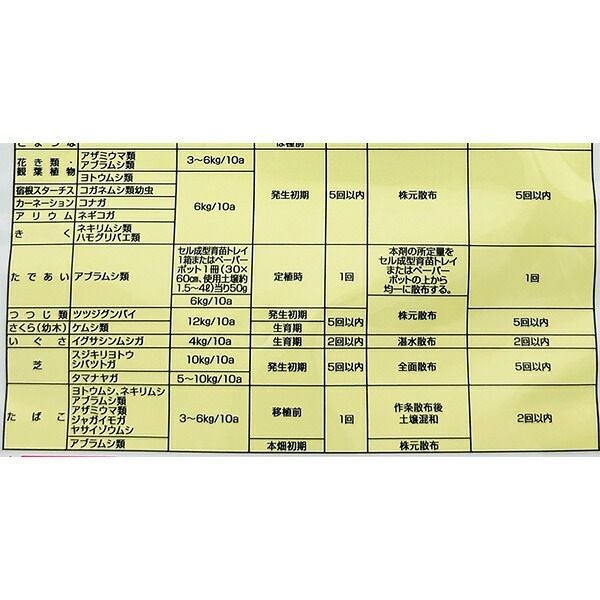 は種前
花き類・ アザミウマ類 3〜6kg/10a
観葉植物 アブラムシ類
ヨトウムシ類
宿根スターチス コガネムシ類幼虫
カーネーション コナガ 6kg/10a 発生初期 5回以内 株元散布 5回以内
アリウム ネギコガ
きく ネキリムシ類
ハモグリバエ類
たであい アブラムシ類 セル成型育苗トレイ
1箱またはペーパー
ポット1冊(30×
60cm、使用土壌約
1.5〜4ℓ)当り50g
定植時 1回 本剤の所定量を
セル成型育苗トレイ
またはペーパー
ポットの上から
均一に散布する。
1回
6kg/10a
つつじ類 ツツジグンバイ 12kg/10a 発生初期 5回以内 株元散布 5回以内
さくら(幼木) ケムシ類 生育期
いぐさ イグサシンムシガ 4kg/10a 生育期 2回以内 湛水散布 2回以内
芝 スジキリヨトウ 10kg/10a 発生初期 5回以内 全面散布 5回以内
シバツトガ
タマナヤガ 5〜10kg/10a
たばこ ヨトウムシ、ネキリムシ
アブラムシ類
アザミウマ類
ジャガイモガ
ヤサイゾウムシ
3〜6kg/10a 移植前 1回 作条散布後
土壌混和
2回以内
アブラムシ類 本畑初期 株元散布